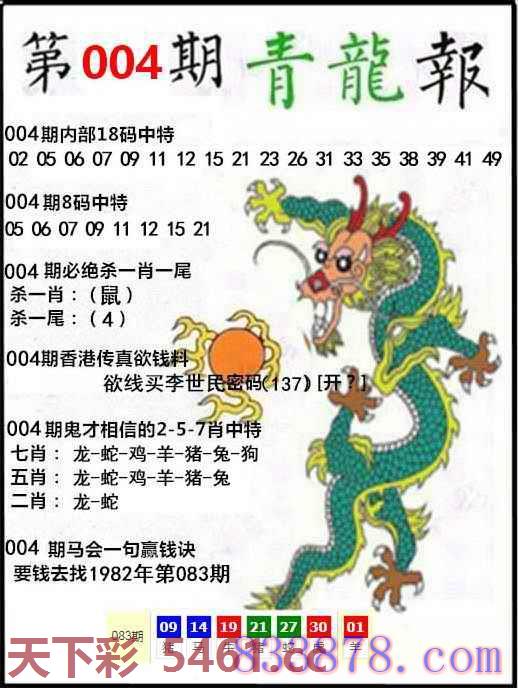 第004期青龍報
004期内部18码中特
02 05 06 07 09 11 12 15 21 23 26 31 33 35 38 39 41 49
004期8码中特
05 06 07 09 11 12 15 21
004 期必绝杀一肖一尾
杀一肖:(鼠)
杀一尾:(4)
004期香港传真欲钱料
欲线买李世民密码(137) [开?]
004期鬼才相信的2-5-7肖中特
七肖: 龙-蛇-鸡-羊-猪-兔-狗
五肖: 龙-蛇-鸡-羊-猪-兔
二肖: 龙-蛇
004 期马会一句赢钱诀
要钱去找1982年第083期
083期 09 14 19 21 27 30 01
猪 马 牛 猪 蛇 虎 羊
天下彩 5461.cc
838878.com